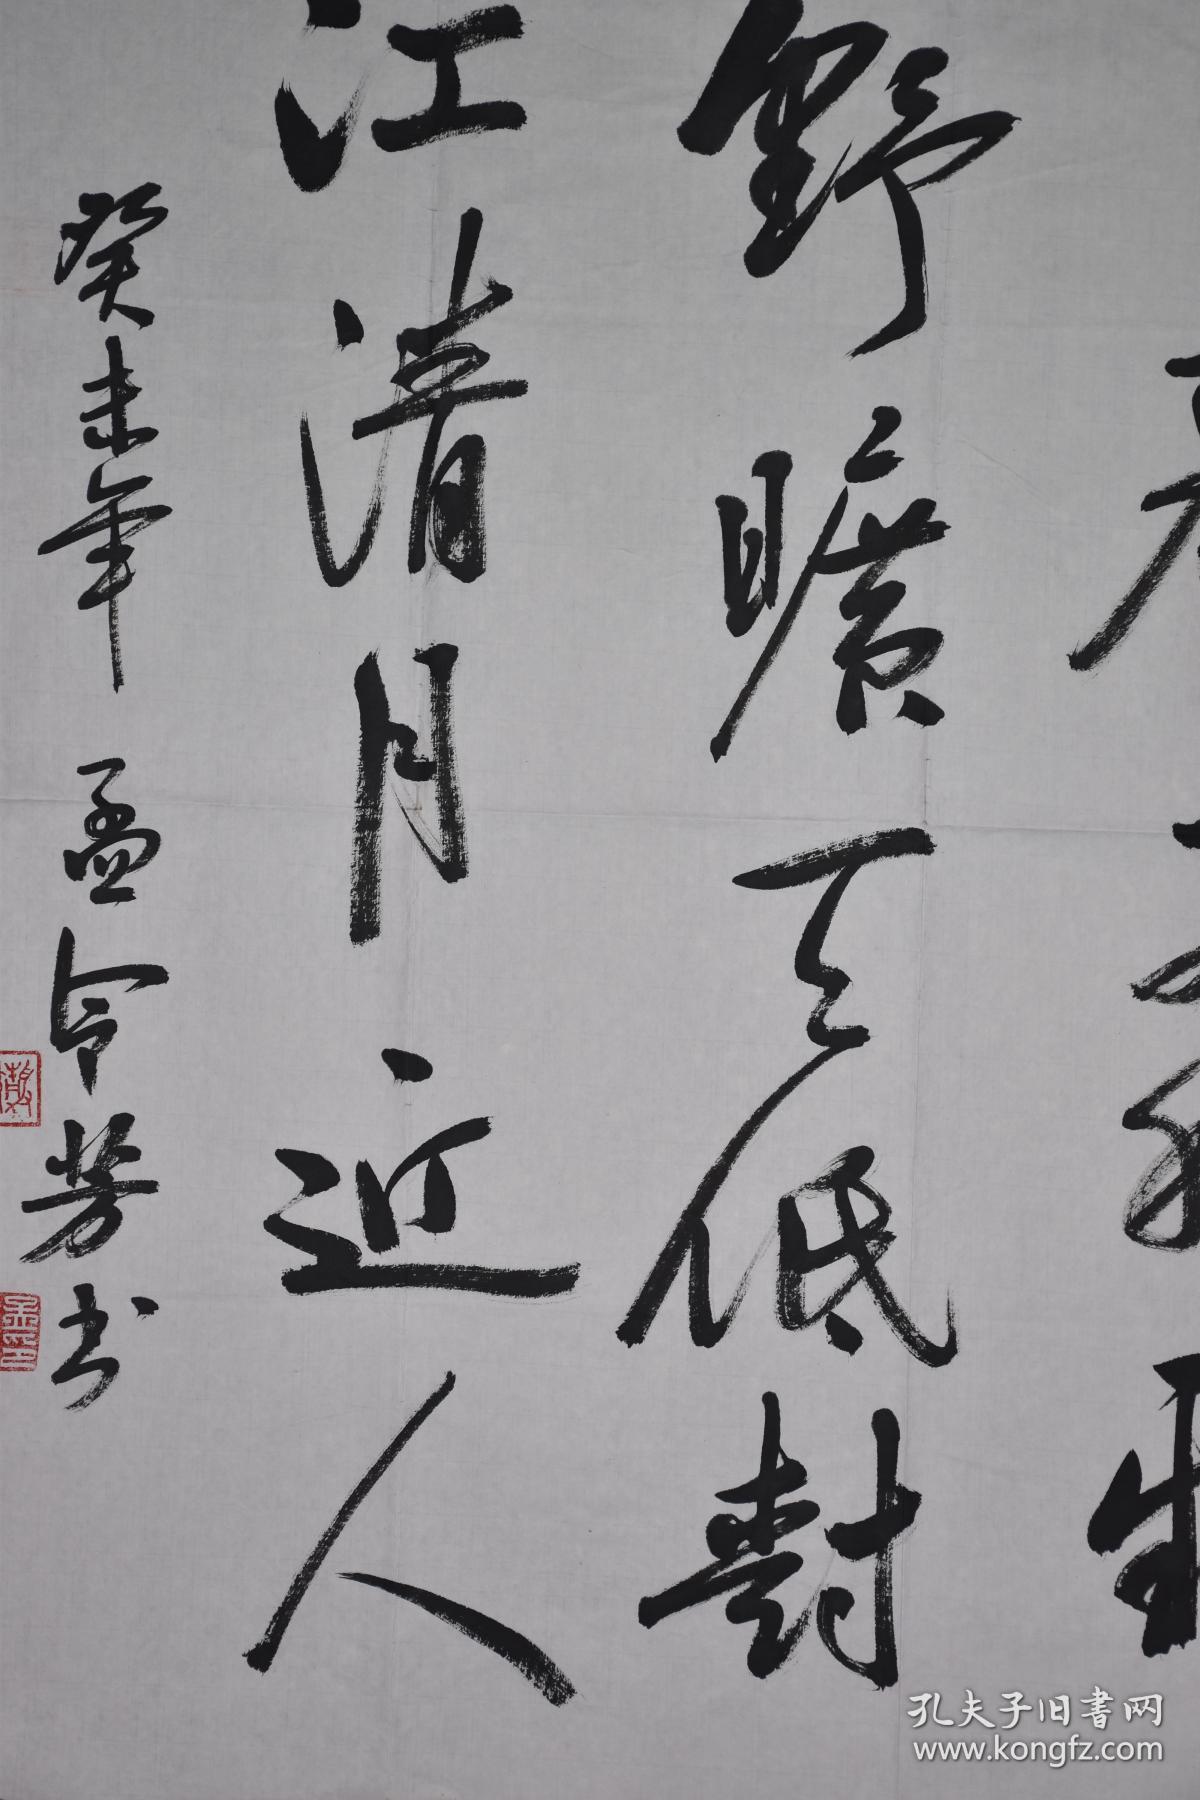 野曠天低樹
江清月近人
癸未年 孟令芳书
孔夫子旧書网
www.kongfz.com